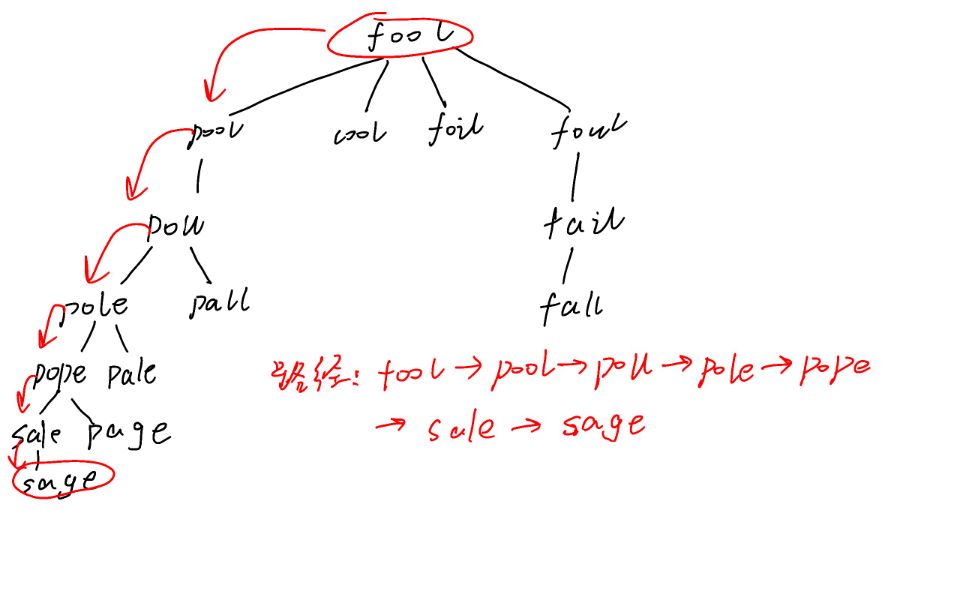 fool
pool cool foil foul
poll tail
pole pall fall
pope pale
sale page
sage
路径: fool → pool → poll → pole → pope
→ sale → sage